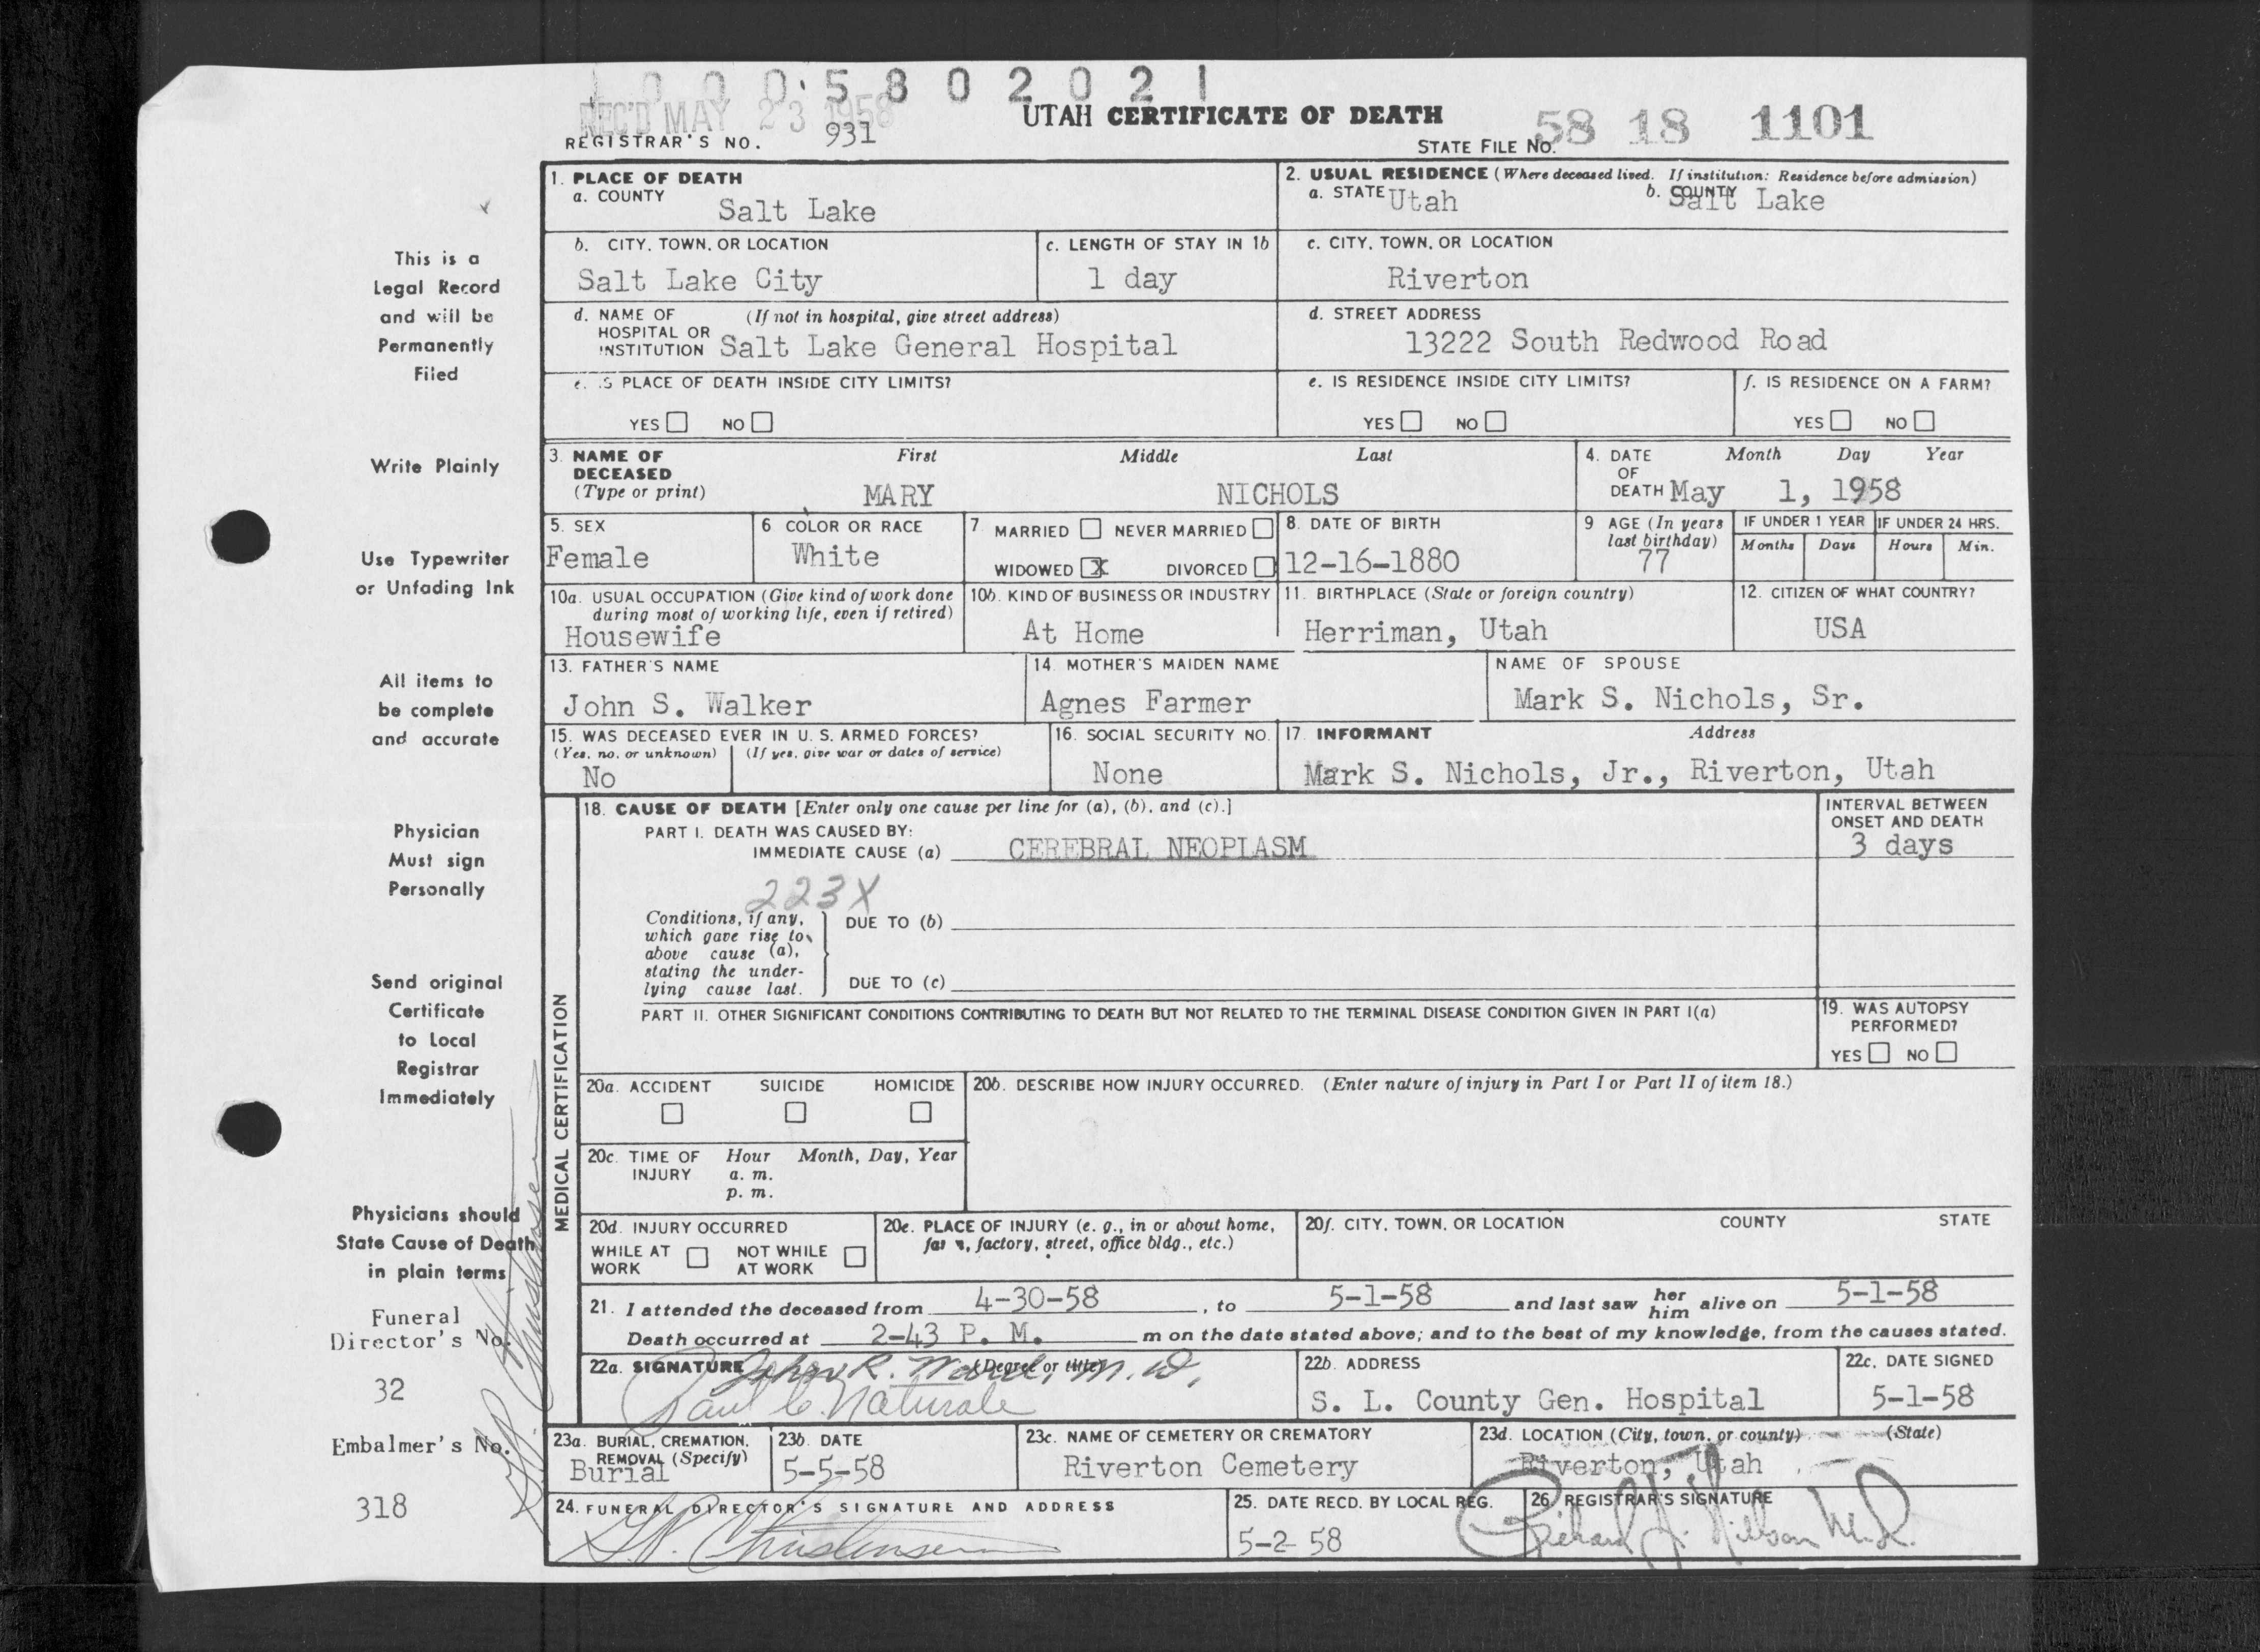 1 0 0 0 5 8 0 2 0 2 1
REC'D MAY 23 1958
UTAH CERTIFICATE OF DEATH
REGISTRAR'S NO. 931
STATE FILE NO. 58 18 1101
1. PLACE OF DEATH
a. COUNTY
Salt Lake
2. USUAL RESIDENCE (Where deceased lived. If institution: Residence before admission)
a. STATE Utah b. COUNTY Salt Lake
b. CITY, TOWN, OR LOCATION
Salt Lake City
c. LENGTH OF STAY IN 1b
1 day
c. CITY, TOWN, OR LOCATION
Riverton
d. NAME OF (If not in hospital, give street address)
HOSPITAL OR
INSTITUTION Salt Lake General Hospital
d. STREET ADDRESS
13222 South Redwood Road
e. IS PLACE OF DEATH INSIDE CITY LIMITS?
YES NO
e. IS RESIDENCE INSIDE CITY LIMITS?
YES NO
f. IS RESIDENCE ON A FARM?
YES NO
3. NAME OF DECEASED
(Type or print)
First Middle Last
MARY NICHOLS
4. DATE OF DEATH
Month Day Year
May 1, 1958
5. SEX
Female
6 COLOR OR RACE
White
7 MARRIED NEVER MARRIED
WIDOWED X DIVORCED
8. DATE OF BIRTH
12-16-1880
9 AGE (In years
last birthday)
77
IF UNDER 1 YEAR
Months Days
IF UNDER 24 HRS.
Hours Min.
10a. USUAL OCCUPATION (Give kind of work done
during most of working life, even if retired)
Housewife
10b. KIND OF BUSINESS OR INDUSTRY
At Home
11. BIRTHPLACE (State or foreign country)
Herriman, Utah
12. CITIZEN OF WHAT COUNTRY?
USA
13. FATHER'S NAME
John S. Walker
14. MOTHER'S MAIDEN NAME
Agnes Farmer
NAME OF SPOUSE
Mark S. Nichols, Sr.
15. WAS DECEASED EVER IN U. S. ARMED FORCES?
(Yes, no, or unknown) (If yes, give war or dates of service)
No
16. SOCIAL SECURITY NO.
None
17. INFORMANT Address
Mark S. Nichols, Jr., Riverton, Utah
MEDICAL CERTIFICATION
18. CAUSE OF DEATH [Enter only one cause per line for (a), (b), and (c).]
PART I. DEATH WAS CAUSED BY:
IMMEDIATE CAUSE (a) CEREBRAL NEOPLASM
INTERVAL BETWEEN
ONSET AND DEATH
3 days
223X
Conditions, if any,
which gave rise to
above cause (a),
stating the under-
lying cause last.
DUE TO (b)
DUE TO (c)
PART II. OTHER SIGNIFICANT CONDITIONS CONTRIBUTING TO DEATH BUT NOT RELATED TO THE TERMINAL DISEASE CONDITION GIVEN IN PART I(a)
19. WAS AUTOPSY
PERFORMED?
YES NO
20a. ACCIDENT SUICIDE HOMICIDE
20b. DESCRIBE HOW INJURY OCCURRED. (Enter nature of injury in Part I or Part II of item 18.)
20c. TIME OF INJURY
Hour Month, Day, Year
a. m.
p. m.
20d. INJURY OCCURRED
WHILE AT WORK
NOT WHILE AT WORK
20e. PLACE OF INJURY (e. g., in or about home,
farm, factory, street, office bldg., etc.)
20f. CITY, TOWN, OR LOCATION COUNTY STATE
21. I attended the deceased from 4-30-58, to 5-1-58 and last saw her him alive on 5-1-58
Death occurred at 2-43 P. M. m on the date stated above; and to the best of my knowledge, from the causes stated.
22a. SIGNATURE (Degree or title)
John R. Ward, M.D.
Paul C. Naturale
22b. ADDRESS
S. L. County Gen. Hospital
22c. DATE SIGNED
5-1-58
23a. BURIAL, CREMATION,
REMOVAL (Specify)
Burial
23b. DATE
5-5-58
23c. NAME OF CEMETERY OR CREMATORY
Riverton Cemetery
23d. LOCATION (City, town, or county) (State)
Riverton, Utah
24. FUNERAL DIRECTOR'S SIGNATURE AND ADDRESS
Christensen
25. DATE RECD. BY LOCAL REG.
5-2 58
26. REGISTRAR'S SIGNATURE
Richard
This is a
Legal Record
and will be
Permanently
Filed
Write Plainly
Use Typewriter
or Unfading Ink
All items to
be complete
and accurate
Physician
Must sign
Personally
Send original
Certificate
to Local
Registrar
Immediately
Physicians should
State Cause of Death
in plain terms
Funeral
Director's No.
32
Embalmer's No.
318
Christensen